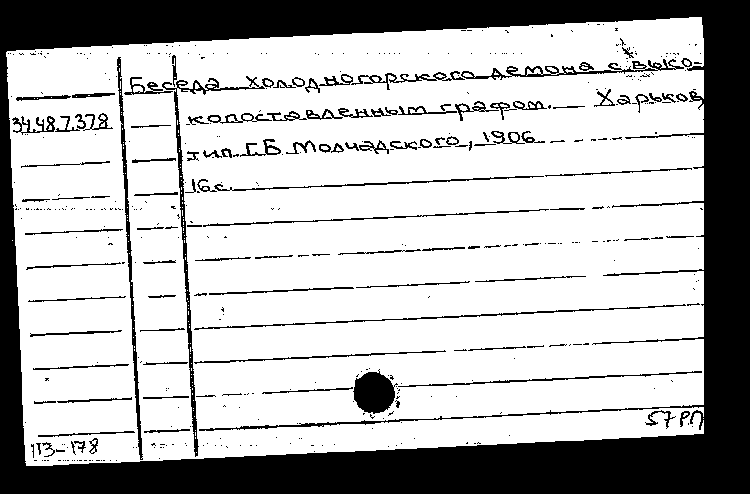 Беседа холодногорского демона с высо-
34.48.7.378 копоставленным графом. Харьков,
тип. Г.Б. Молчадского, 1906
16 с.
57 РП
113-178